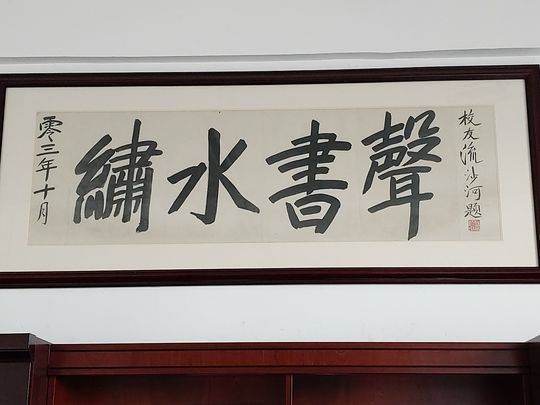 零三年十月
繡水書聲
校友流沙河題